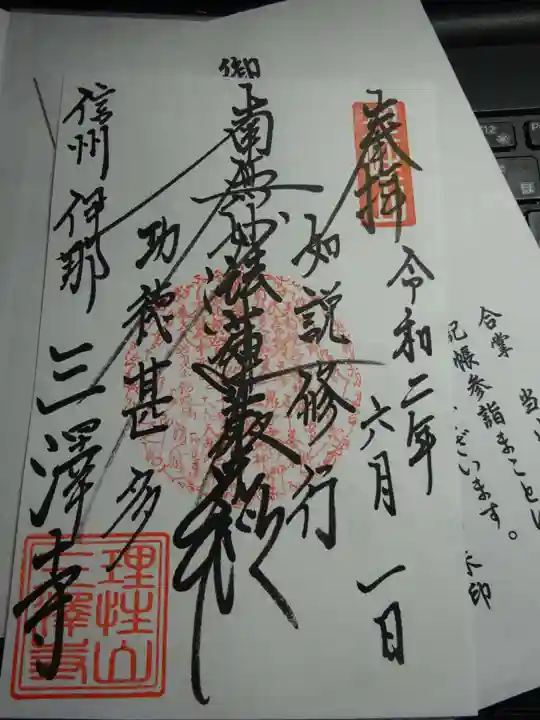 奉拝
令和二年
六月一日
如説修行
南無妙法蓮華経
御
首
功徳甚多
信州伊那
三澤寺
理性山
三澤寺
合掌
記帳参詣まこと
ざいます。
F12